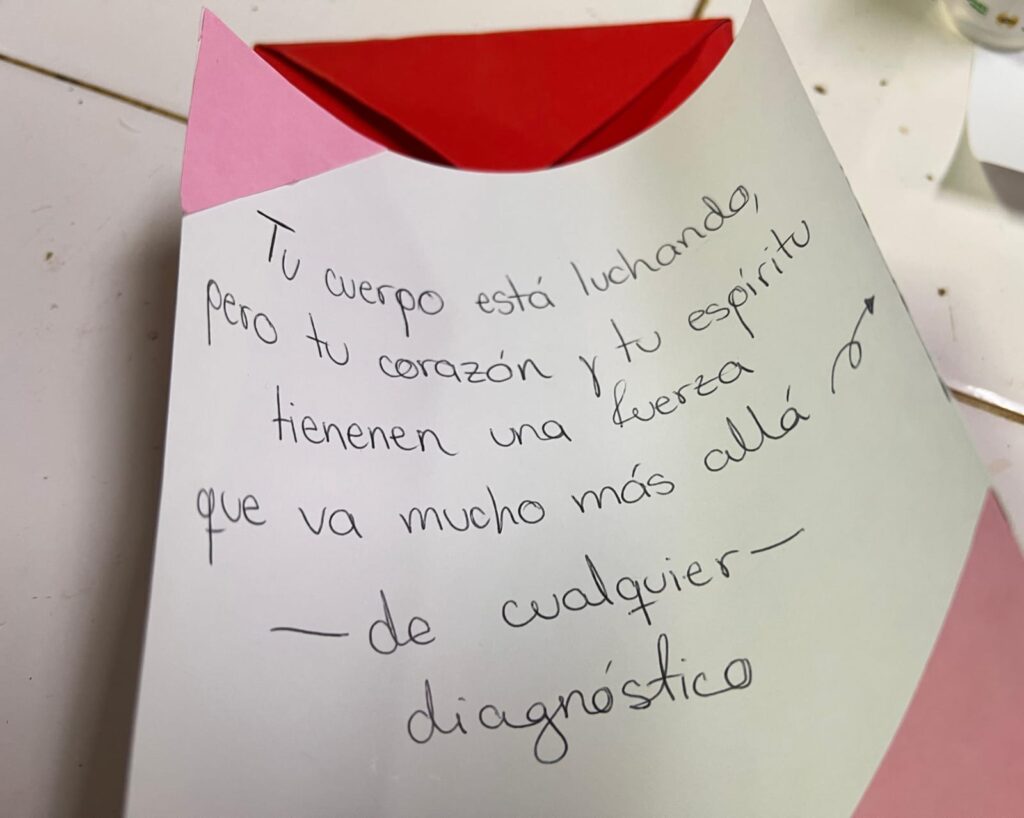 Tu cuerpo está luchando,
pero tu corazón y tu espíritu
tienenen una fuerza
que va mucho más allá
— de cualquier —
diagnóstico